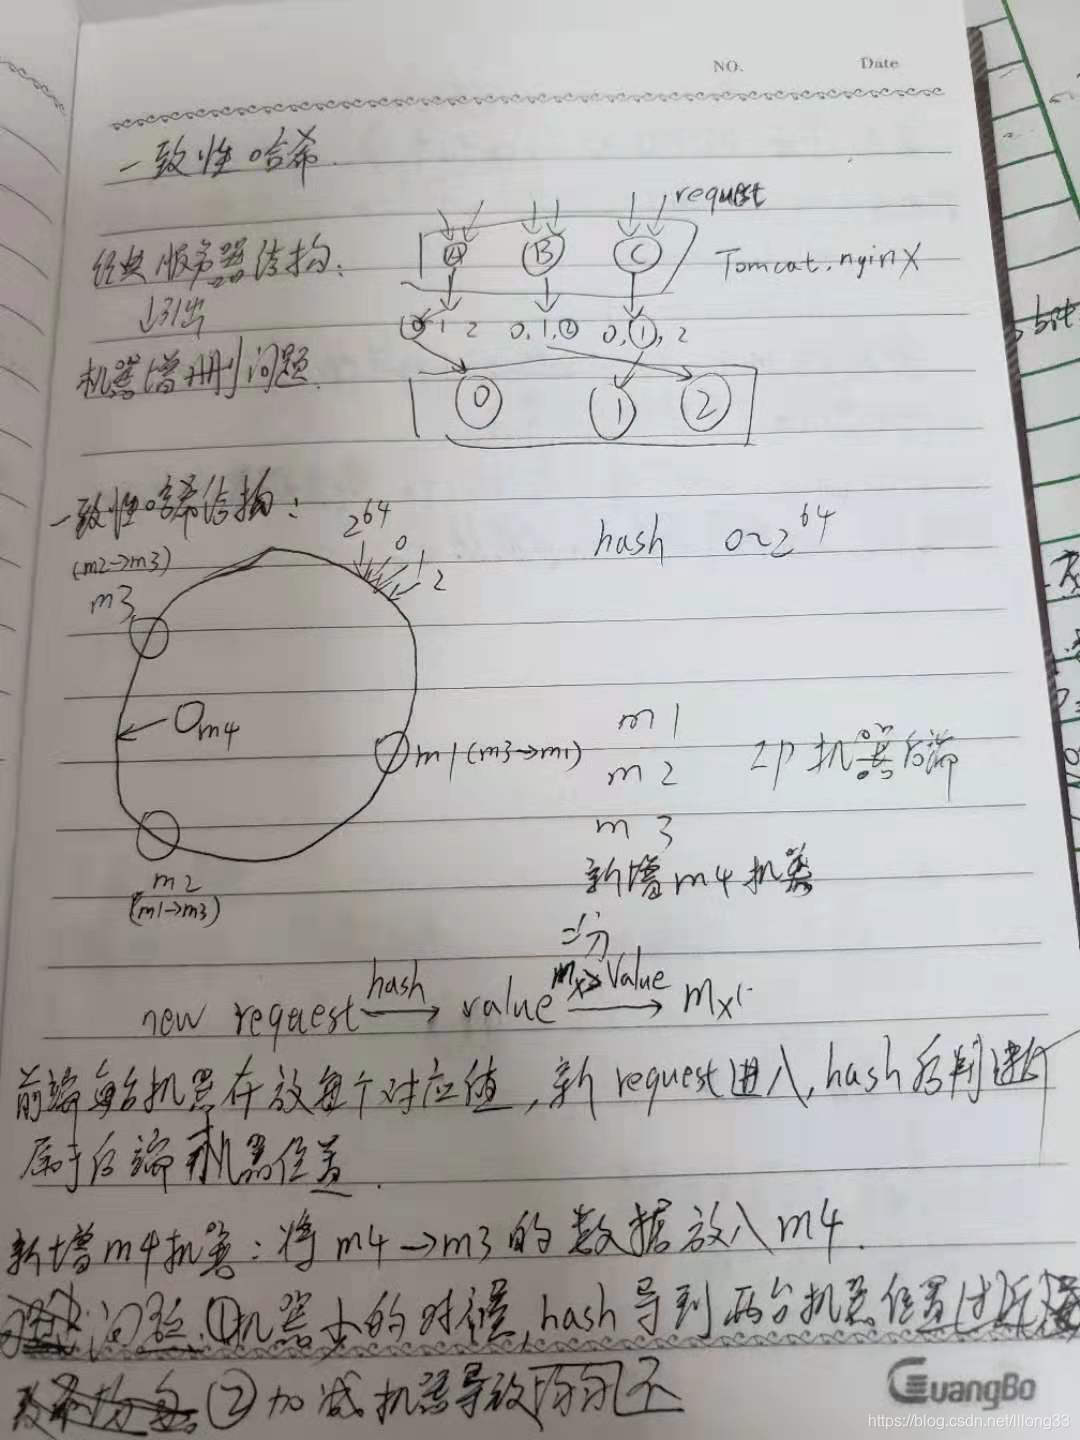 NO. Date
一致性哈希.
request
经典服务器结构:
A B C
Tomcat.nginx
↓引出
0 1 2 0,1,2 0,1,2
机器增删问题.
0 1 2
一致性哈希结构:
2^64 0 1 2
hash 0~2^64
(m2→m3)
m3
m4
m1(m3→m1)
m1
m2
机器后端
m3
新增m4机器
m2
(m1→m3)
二分
new request hash→ value mx≥value→ mx
前端每台机器存放每个对应值,新request进入,hash后判断
属于后端机器位置.
新增m4机器:将m4→m3的数据放入m4.
问题.①机器少的时候,hash导到两台机器位置过近
②加减机器导致
GuangBo
https://blog.csdn.net/lllong33